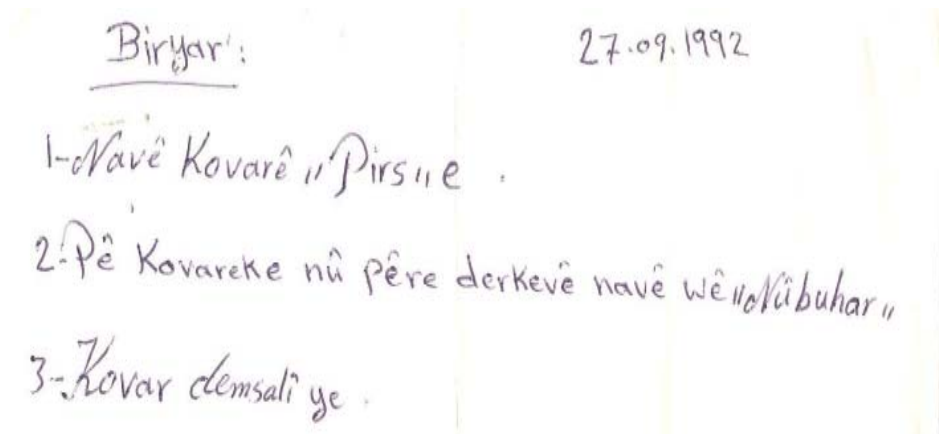 Biryar: 27.09.1992
1-Navê Kovarê „Pirs„ e .
2-Pê Kovareke nû pêre derkevê navê wê „Nûbuhar„
3-Kovar demsalî ye .